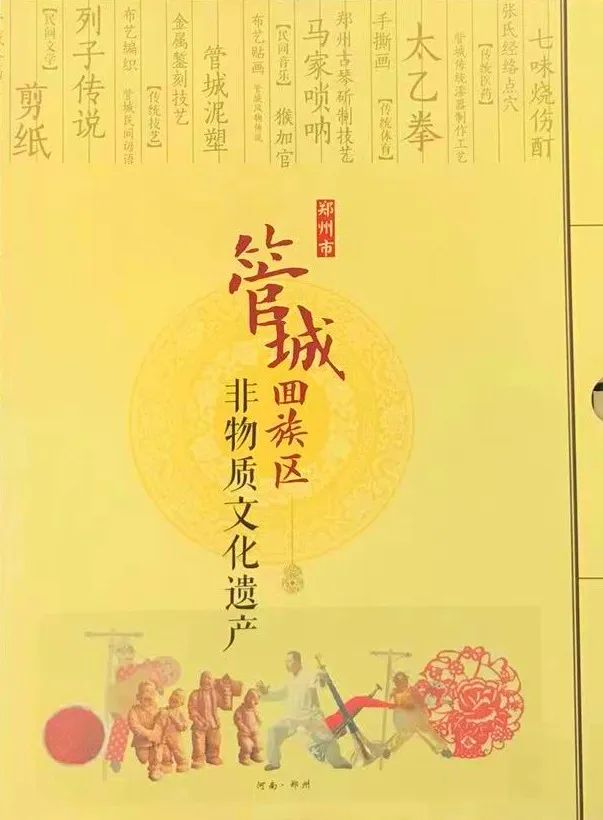 七味烧伤酊
张氏经络点穴
【传统医药】
管城传统漆器制作工艺
太乙拳
【传统体育】
手撕画
郑州古琴斫制技艺
马家唢呐
【民间音乐】
猴加官
布艺贴画
管城泥塑
金属錾刻技艺
【传统技艺】
布艺编织
管城民间谚语
列子传说
【民间文学】
剪纸
郑州市
管城
回族区
非物质文化遗产
河南·郑州